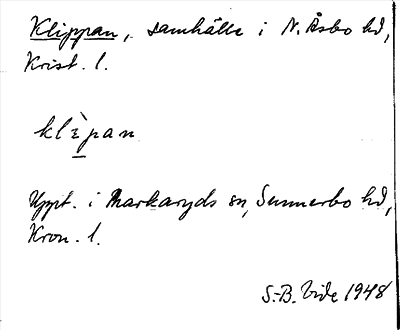 Klippan, samhälle i N. Åsbo hd,
Krist. l.
klɛ̀pan
Uppt. i Markaryds sn, Sunnerbo hd,
Kron. l.
S.-B. Vide 1948